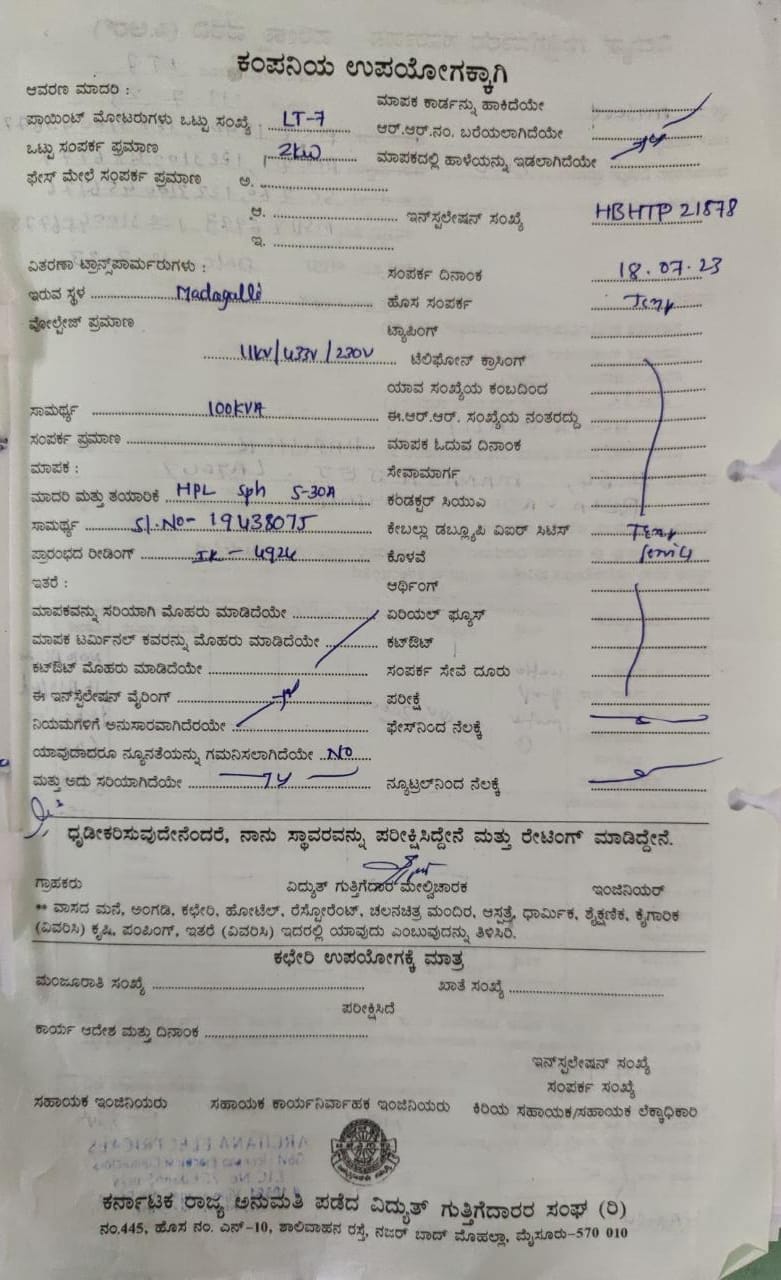 ಕಂಪನಿಯ ಉಪಯೋಗಕ್ಕಾಗಿ
ಆವರಣ ಮಾದರಿ :
ಮಾಪಕ ಕಾರ್ಡನ್ನು ಹಾಕಿದೆಯೇ
ಪಾಯಿಂಟ್ ಮೋಟರುಗಳು ಒಟ್ಟು ಸಂಖ್ಯೆ LT-7
ಆರ್.ಆರ್.ನಂ. ಬರೆಯಲಾಗಿದೆಯೇ
ಒಟ್ಟು ಸಂಪರ್ಕ ಪ್ರಮಾಣ 2KW
ಮಾಪಕದಲ್ಲಿ ಹಾಳೆಯನ್ನು ಇಡಲಾಗಿದೆಯೇ
ಫೇಸ್ ಮೇಲೆ ಸಂಪರ್ಕ ಪ್ರಮಾಣ ಅ.
ಆ.
ಇನ್‌ಸ್ಟಲೇಷನ್ ಸಂಖ್ಯೆ HBHTP 21878
ಇ.
ವಿತರಣಾ ಟ್ರಾನ್ಸ್‌ಪಾರ್ಮರುಗಳು :
ಸಂಪರ್ಕ ದಿನಾಂಕ 18.07.23
ಇರುವ ಸ್ಥಳ Madagalli
ಹೊಸ ಸಂಪರ್ಕ Temp
ವೋಲ್ಟೇಜ್ ಪ್ರಮಾಣ
ಟ್ಯಾಪಿಂಗ್
11KV/433V/230V
ಟೆಲಿಫೋನ್ ಕ್ರಾಸಿಂಗ್
ಯಾವ ಸಂಖ್ಯೆಯ ಕಂಬದಿಂದ
ಸಾಮರ್ಥ್ಯ 100KVA
ಈ.ಆರ್.ಆರ್. ಸಂಖ್ಯೆಯ ನಂತರದ್ದು
ಸಂಪರ್ಕ ಪ್ರಮಾಣ
ಮಾಪಕ ಓದುವ ದಿನಾಂಕ
ಮಾಪಕ :
ಸೇವಾಮಾರ್ಗ
ಮಾದರಿ ಮತ್ತು ತಯಾರಿಕೆ HPL Sph 5-30A
ಕಂಡಕ್ಟರ್ ಸಿಯುಎ
ಸಾಮರ್ಥ್ಯ Sl.No- 19438075
ಕೇಬಲ್ಲು ಡಬ್ಲ್ಯೂಪಿ ವಿಐರ್ ಸಿಟಿಸ್ Temp
ಪ್ರಾರಂಭದ ರೀಡಿಂಗ್ IR - 4924
ಕೊಳವೆ Service
ಇತರೆ :
ಆರ್ಥಿಂಗ್
ಮಾಪಕವನ್ನು ಸರಿಯಾಗಿ ಮೊಹರು ಮಾಡಿದೆಯೇ
ಏರಿಯಲ್ ಫ್ಯೂಸ್
ಮಾಪಕ ಟರ್ಮಿನಲ್ ಕವರನ್ನು ಮೊಹರು ಮಾಡಿದೆಯೇ
ಕಟ್‌ಔಟ್
ಕಟ್‌ಔಟ್ ಮೊಹರು ಮಾಡಿದೆಯೇ
ಸಂಪರ್ಕ ಸೇವೆ ದೂರು
ಈ ಇನ್‌ಸ್ಟೆಲೇಷನ್ ವೈರಿಂಗ್
ಪರೀಕ್ಷೆ
ನಿಯಮಗಳಿಗೆ ಅನುಸಾರವಾಗಿದೆರಯೇ
ಫೇಸ್‌ನಿಂದ ನೆಲಕ್ಕೆ
ಯಾವುದಾದರೂ ನ್ಯೂನತೆಯನ್ನು ಗಮನಿಸಲಾಗಿದೆಯೇ No
ಮತ್ತು ಅದು ಸರಿಯಾಗಿದೆಯೇ
ನ್ಯೂಟ್ರಲ್‌ನಿಂದ ನೆಲಕ್ಕೆ
ಧೃಡೀಕರಿಸುವುದೇನೆಂದರೆ, ನಾನು ಸ್ಥಾವರವನ್ನು ಪರೀಕ್ಷಿಸಿದ್ದೇನೆ ಮತ್ತು ರೇಟಿಂಗ್ ಮಾಡಿದ್ದೇನೆ.
ಗ್ರಾಹಕರು ವಿದ್ಯುತ್ ಗುತ್ತಿಗೆದಾರ ಮೇಲ್ವಿಚಾರಕ ಇಂಜಿನಿಯರ್
** ವಾಸದ ಮನೆ, ಅಂಗಡಿ, ಕಛೇರಿ, ಹೋಟೆಲ್, ರೆಸ್ಟೋರೆಂಟ್, ಚಲನಚಿತ್ರ ಮಂದಿರ, ಆಸ್ಪತ್ರೆ, ಧಾರ್ಮಿಕ, ಶೈಕ್ಷಣಿಕ, ಕೈಗಾರಿಕ
(ವಿವರಿಸಿ) ಕೃಷಿ, ಪಂಪಿಂಗ್, ಇತರೆ (ವಿವರಿಸಿ) ಇದರಲ್ಲಿ ಯಾವುದು ಎಂಬುವುದನ್ನು ತಿಳಿಸಿರಿ.
ಕಛೇರಿ ಉಪಯೋಗಕ್ಕೆ ಮಾತ್ರ
ಮಂಜೂರಾತಿ ಸಂಖ್ಯೆ ಖಾತೆ ಸಂಖ್ಯೆ
ಪರೀಕ್ಷಿಸಿದೆ
ಕಾರ್ಯ ಆದೇಶ ಮತ್ತು ದಿನಾಂಕ
ಇನ್‌ಸ್ಟಲೇಷನ್ ಸಂಖ್ಯೆ
ಸಂಪರ್ಕ ಸಂಖ್ಯೆ
ಸಹಾಯಕ ಇಂಜಿನಿಯರು ಸಹಾಯಕ ಕಾರ್ಯನಿರ್ವಾಹಕ ಇಂಜಿನಿಯರು ಕಿರಿಯ ಸಹಾಯಕ/ಸಹಾಯಕ ಲೆಕ್ಕಾಧಿಕಾರಿ
ಕರ್ನಾಟಕ ರಾಜ್ಯ ಅನುಮತಿ ಪಡೆದ ವಿದ್ಯುತ್ ಗುತ್ತಿಗೆದಾರರ ಸಂಘ (ರಿ)
ನಂ.445, ಹೊಸ ನಂ. ಎನ್-10, ಶಾಲಿವಾಹನ ರಸ್ತೆ, ನಜರ್ ಬಾದ್ ಮೊಹಲ್ಲಾ, ಮೈಸೂರು-570 010